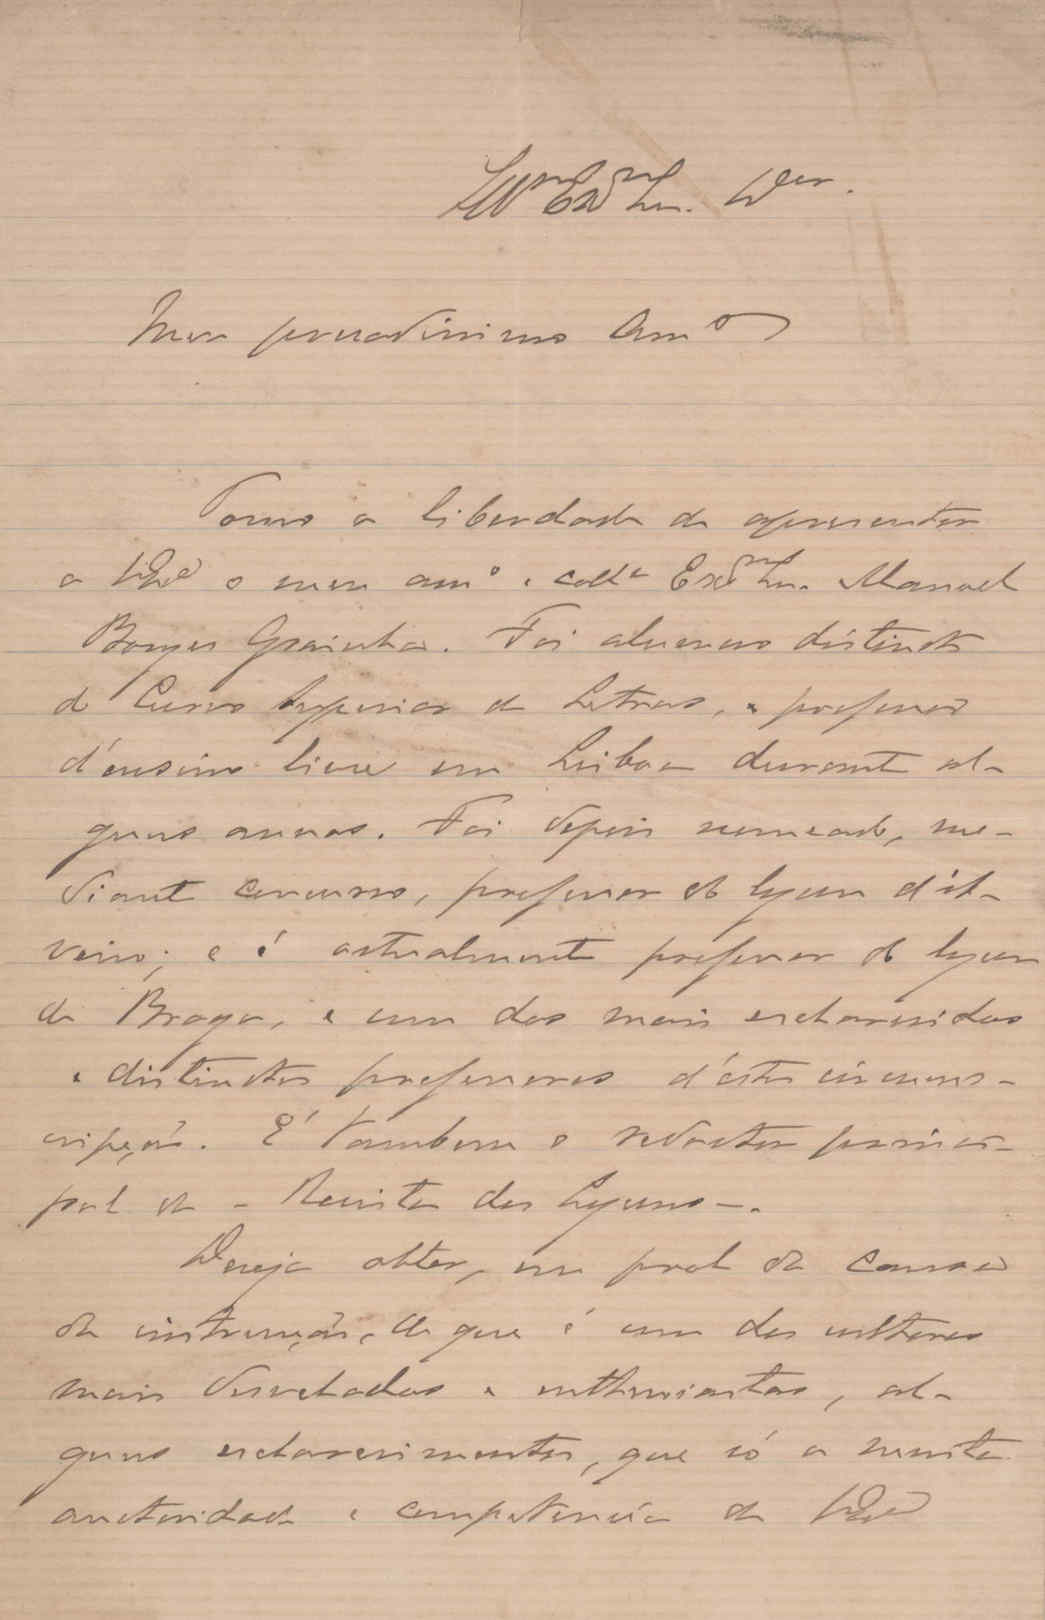 Ill.mo Ex.mo Snr. Dor.
Meu presadissimo Amo
Tomo a liberdade de apresentar
a V. Exa o meu amo e colla Exmo Snr. Manoel
Borges Grainha. Foi alumno distincto
do Curso Superior de Letras, e professor
d'ensino livre em Lisboa durante al-
guns annos. Foi depois nomeado, me-
diante concurso, professor do lyceu d'A-
veiro; e é actualmente professor do lyceu
de Braga, e um dos mais esclarecidos
e distinctos professores d'esta circums-
cripção. É tambem o redactor princi-
pal da - Revista dos Lyceus -.
Deseja obter, em prol da causa
da instrucção, de que é um dos cultores
mais desvelados e enthusiastas, al-
guns esclarecimentos, que só a muita
auctoridade e competencia de V. Exa